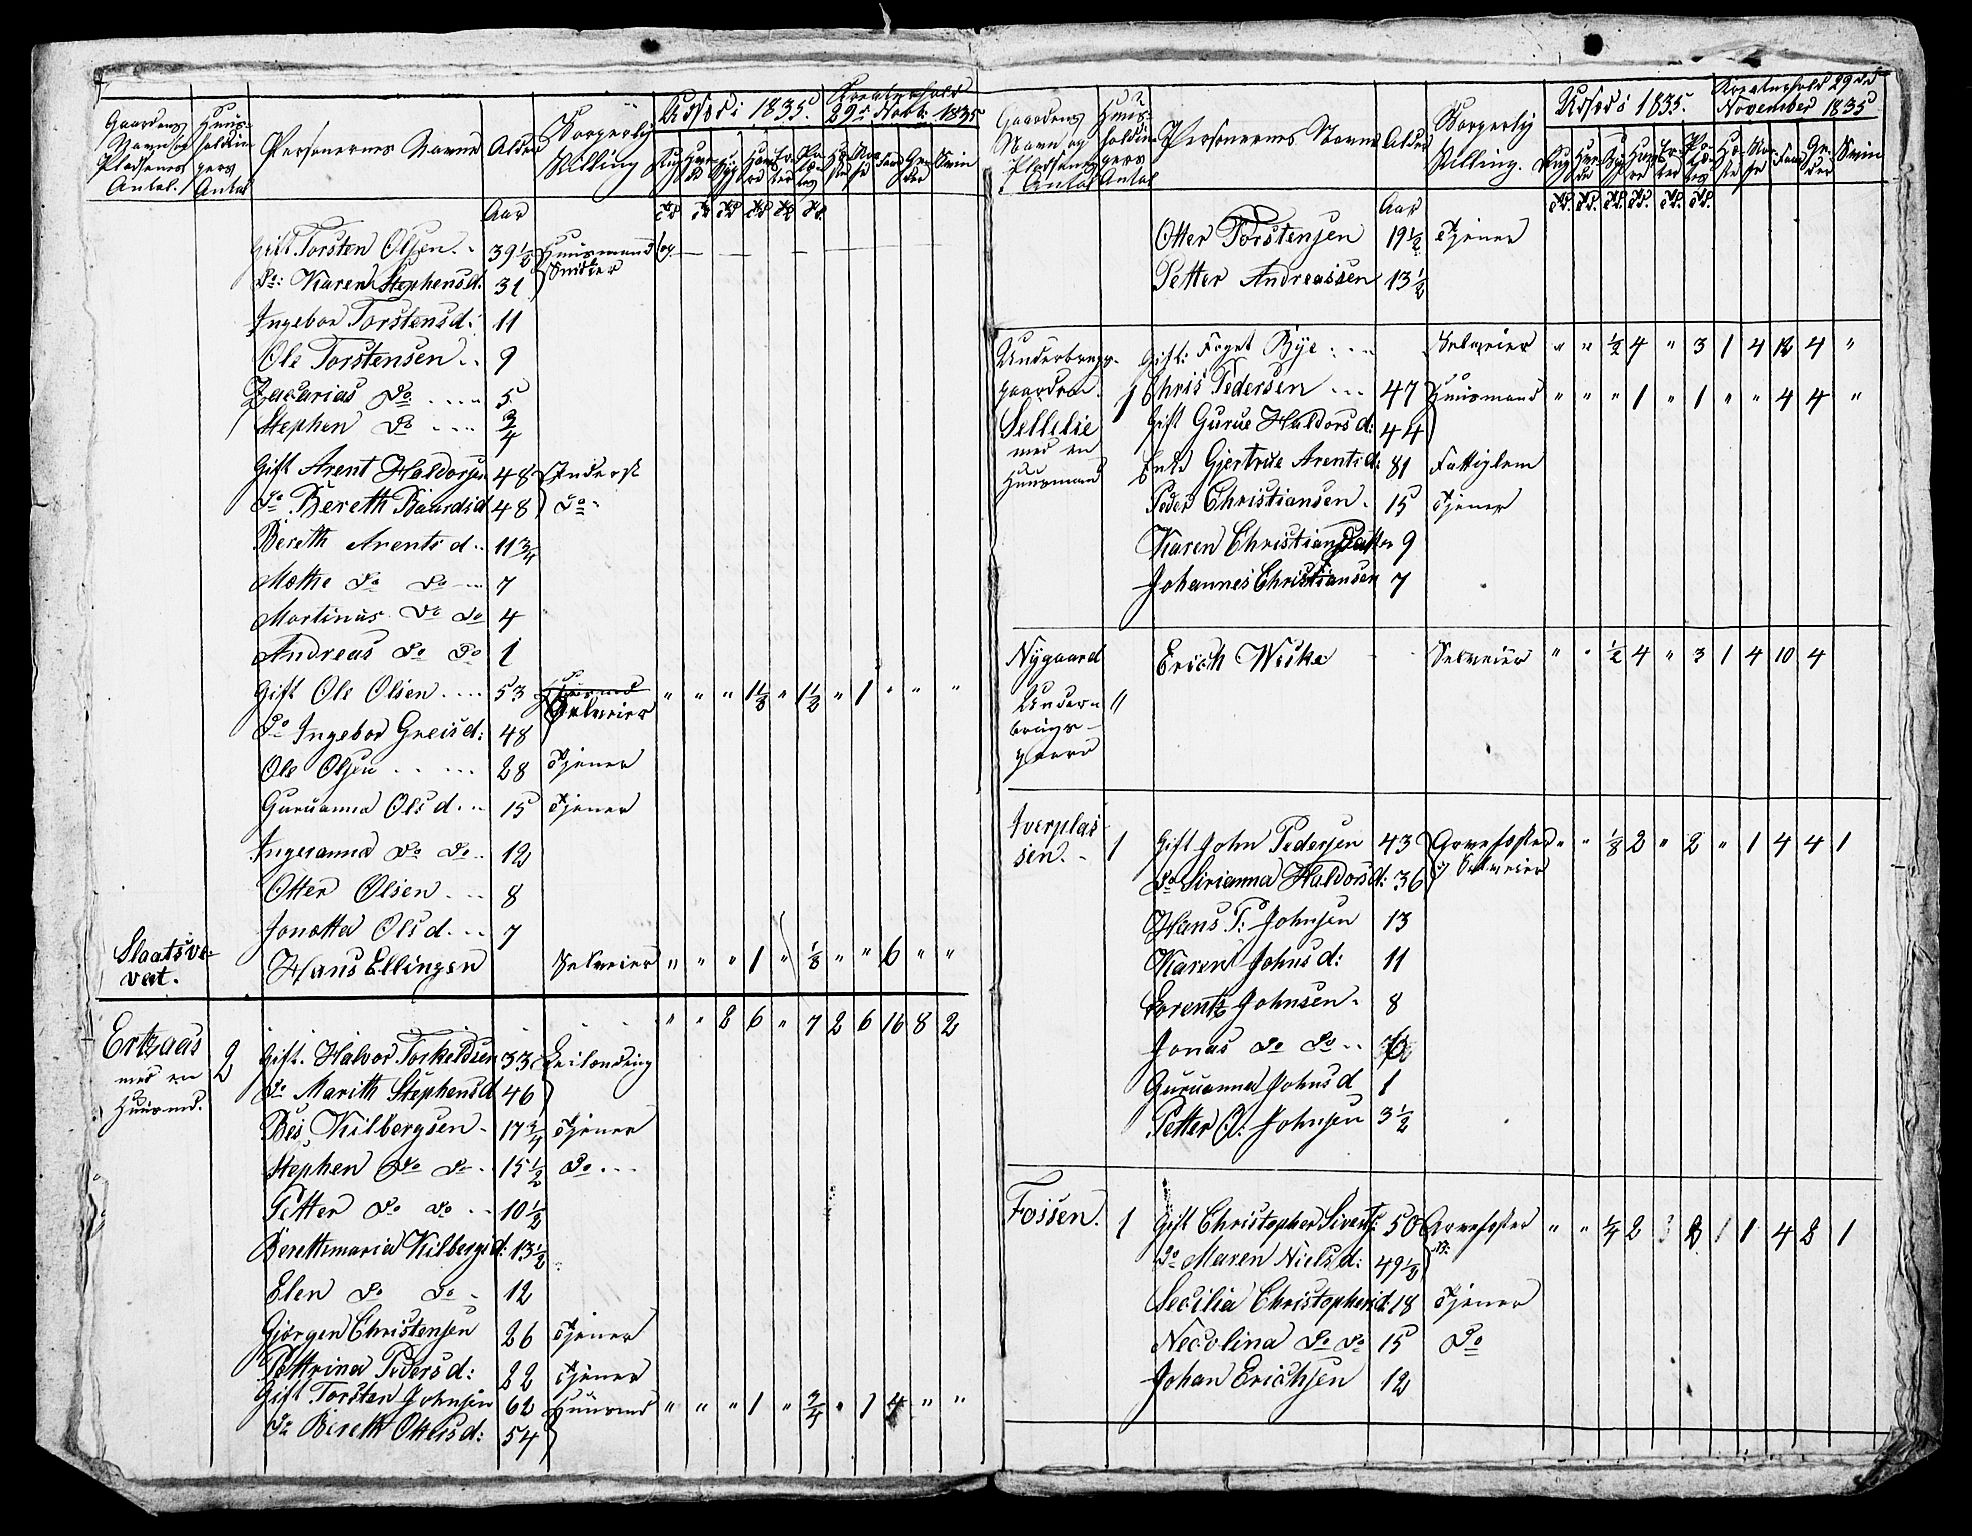 Gaardens Navn og Pladsenes Antal. Huusholdningers Antal Personernes Navne Alder Borgerlig Stilling Udsæd i 1835. Kreaturhold 29de Novb: 1835
Aar
Gift Torsten Olsen 39 1/2 Huusmand og Snidker
Do: Karen Stephensd: 31
Ingebor Torstensd: 11
Ole Torstensen 9
Zacarias Do 5
Stephen Do 3/4
Gift Arent Haldorsen 48 Inderst
Do Bereth Baardsd 48 Do
Bereth Arentsd 11 3/4
Methe Do Do 7
Martinus Do Do 4
Andreas Do Do 1
Gift Ole Olsen 53 Selveier " " " 1 1/8 " 1 1/2 " 1 " " "
Do Ingebor Greisd: 48
Ole Olsen 28 Tjener
Guruanna Olsd 15 Tjener
Ingeranna Do Do 12
Otter Olsen 8
Jonetta Olsd 7
Hans Ellingsen Selveier " " " 1 " 1/8 " " 6 " "
" " 2 6 " 7 2 6 16 8 2
Ertzaas med en Huusmd. 2 Gift. Halvor Torkeldsen 33 Leilænding
Do Marith Stephensd 46
Kilbergsen 17 3/4 Tjener
Stephen Do Do 15 1/2 Do
Petter Do Do 10 1/2
Berethmaria Kilbergsd: 13 1/2
Elen Do Do 12
Gjørgen Christensen 26 Tjener
Pettrina Pedersd: 22 Tjener
Gift Torsten Johnsen 62 Huusmd " " " 1 " 3/4 " 1 4 " "
Do Bereth Ottersd: 54
Gaardens Navn og Pladsenes Antal Huusholdningers Antal Personernes Navne Alder Borgerlig Stilling. Udsæd i 1835. Kreaturhold 29de November 1835
Aar
Otter Torstensen 19 1/2 Tjener
Petter Andreassen 13 1/2
Underbrugsgaarden Gift: Foget Bye Selveier " " 1/2 4 " 3 1 4 12 4 "
Sellelie med en Huusmand 1 Chris Pedersen 47 Huusmand " " " 1 " 1 " " 4 4 "
Gift Gurue Haldorsd: 44
Enke Gjertrue Arentsd: 81 Fattiglem
Peder Christiansen 15 Tjener
Karen Christiansdatter 9
Johannes Christiansen 7
Nygaard Underbrugsgaard " Erich Wiske Selveier " " 1/2 4 " 3 1 4 10 4
Iverplassen. 1 Gift John Pedersen 43 Selveier " " 1/8 2 " 2 " 1 4 4 1
Do Sirianna Haldorsd: 36
Hans P: Johnsen 13
Karen Johnsd: 11
Lorentz Johnsen 8
Jonas Do Do
Guruanna Johnsd 1
Petter O: Johnsen 3 1/2
Fossen. 1 Gift Christopher Siverts: 50 " " 1/4 2 1 4 2 1
Do Maren Nielsd: 49 1/2
Secilia Christophersd: 18 Tjener
Necolina Do Do 15 Do
Johan Erichsen 12